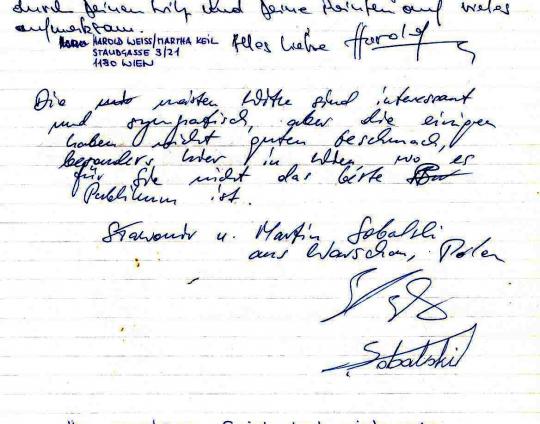 durch seinen Witz und seine Feinheit auf vieles
aufmerksam.
HAROLD WEISS/MARTHA KEIL
STAUDGASSE 3/21
1180 WIEN
Alles Liebe Harold
Die meisten Witze sind interessant
und sympatisch, aber die einigen
haben nicht guten Geschmack,
besonders hier in Wien, wo es
für Sie nicht das beste
Publikum ist.
Sławomir u. Martin Sobalski
aus Warschau, Polen
Sobalski